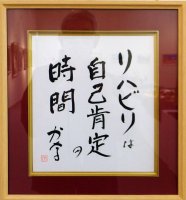 リハビリは
自己肯定の
時間